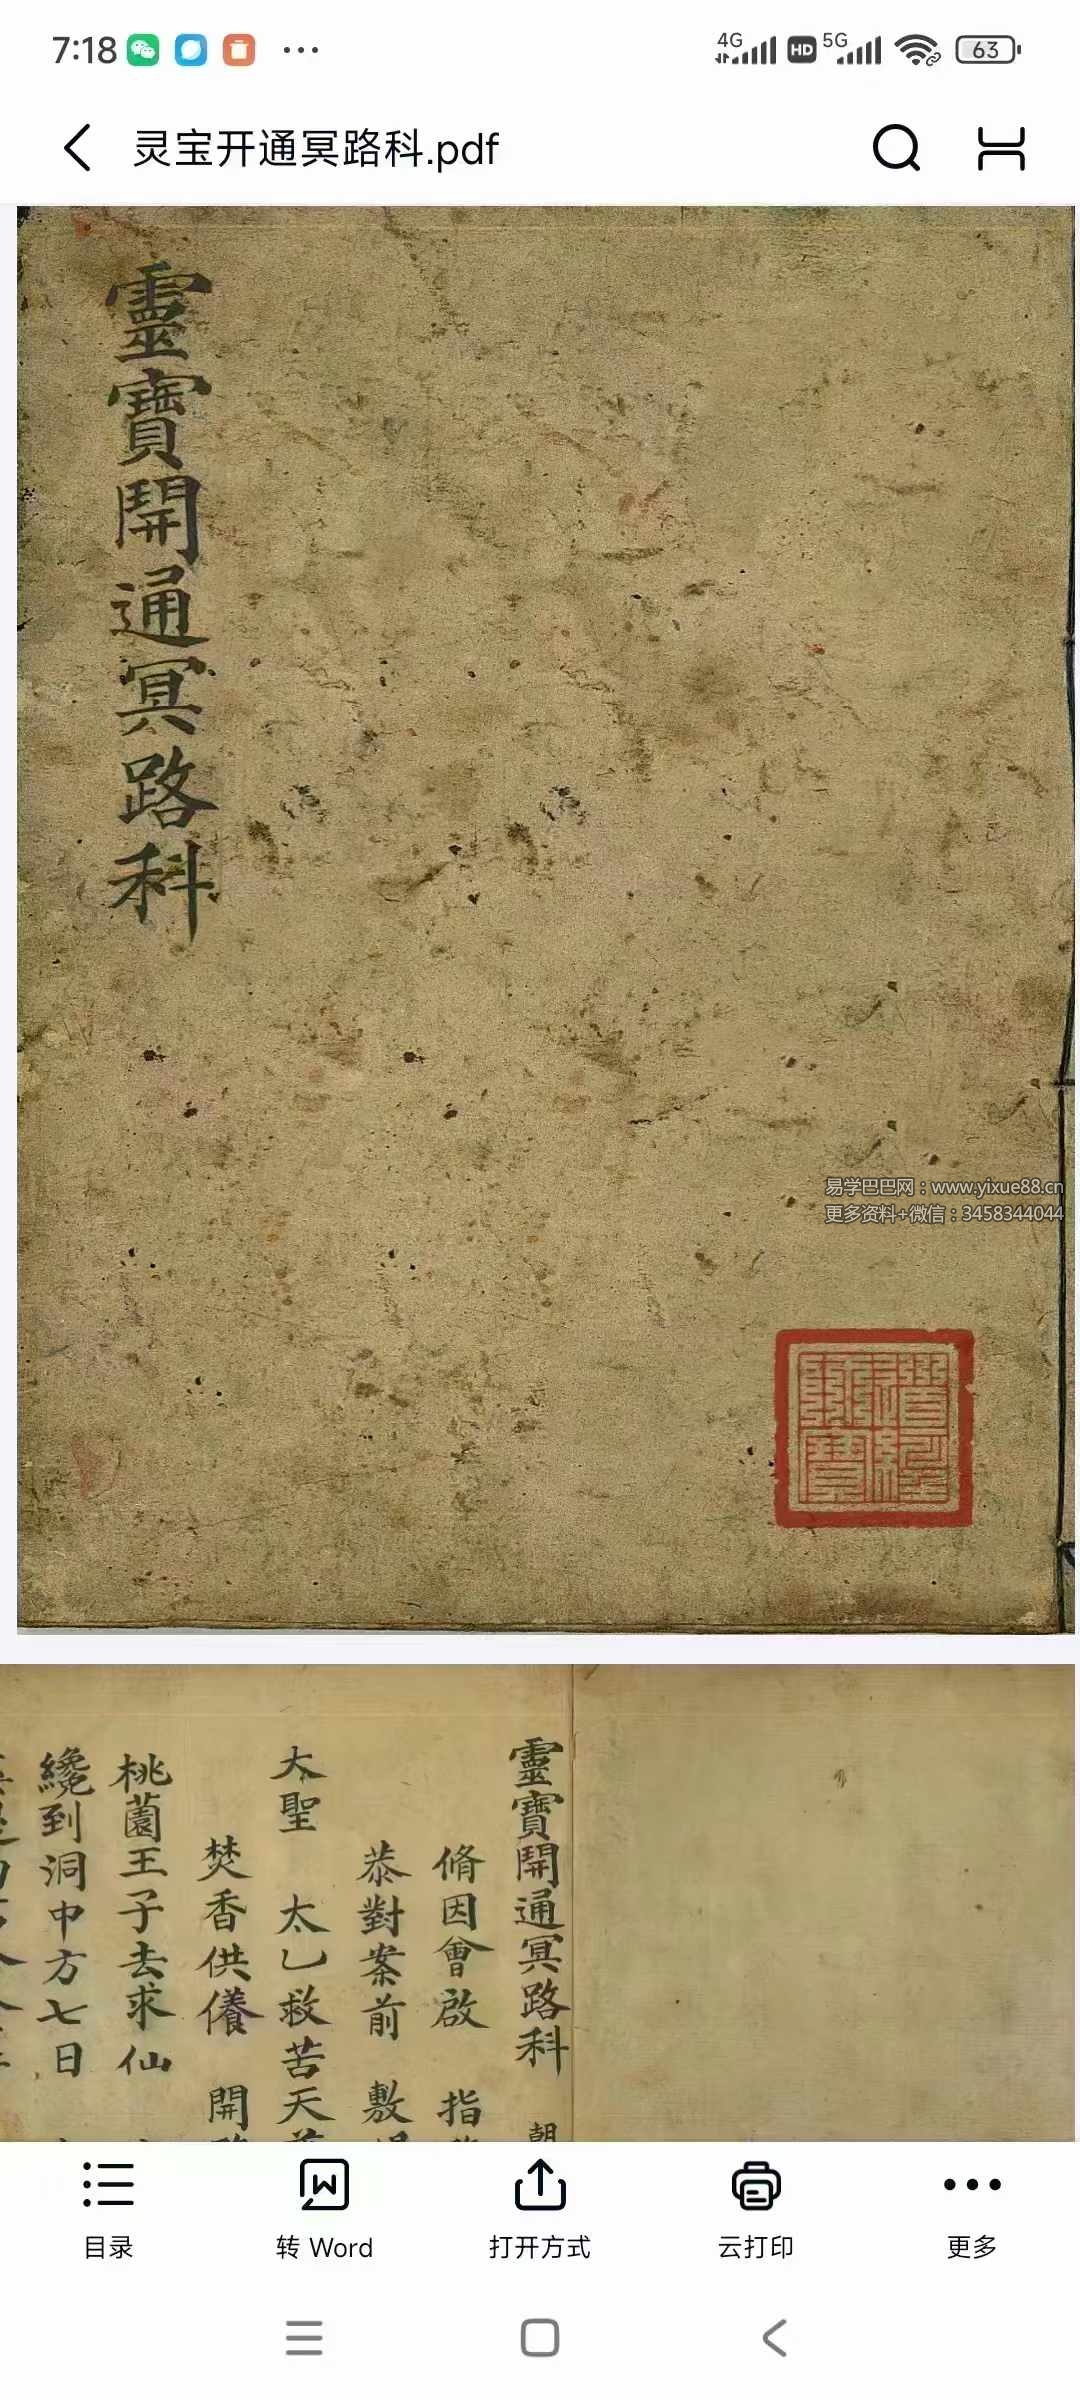 7:18
4G HD 5G 63
灵宝开通冥路科.pdf
靈寶開通冥路科
易学巴巴网：www.yixue88.cn
更多资料+微信：3458344044
道經
寶
靈寶開通冥路科 朝
脩因會啟 指
恭對案前 敷
大聖 太乙救苦天
焚香供養 開
桃薗王子去求仙
纔到洞中方七日
目录
转 Word
打开方式
云打印
更多